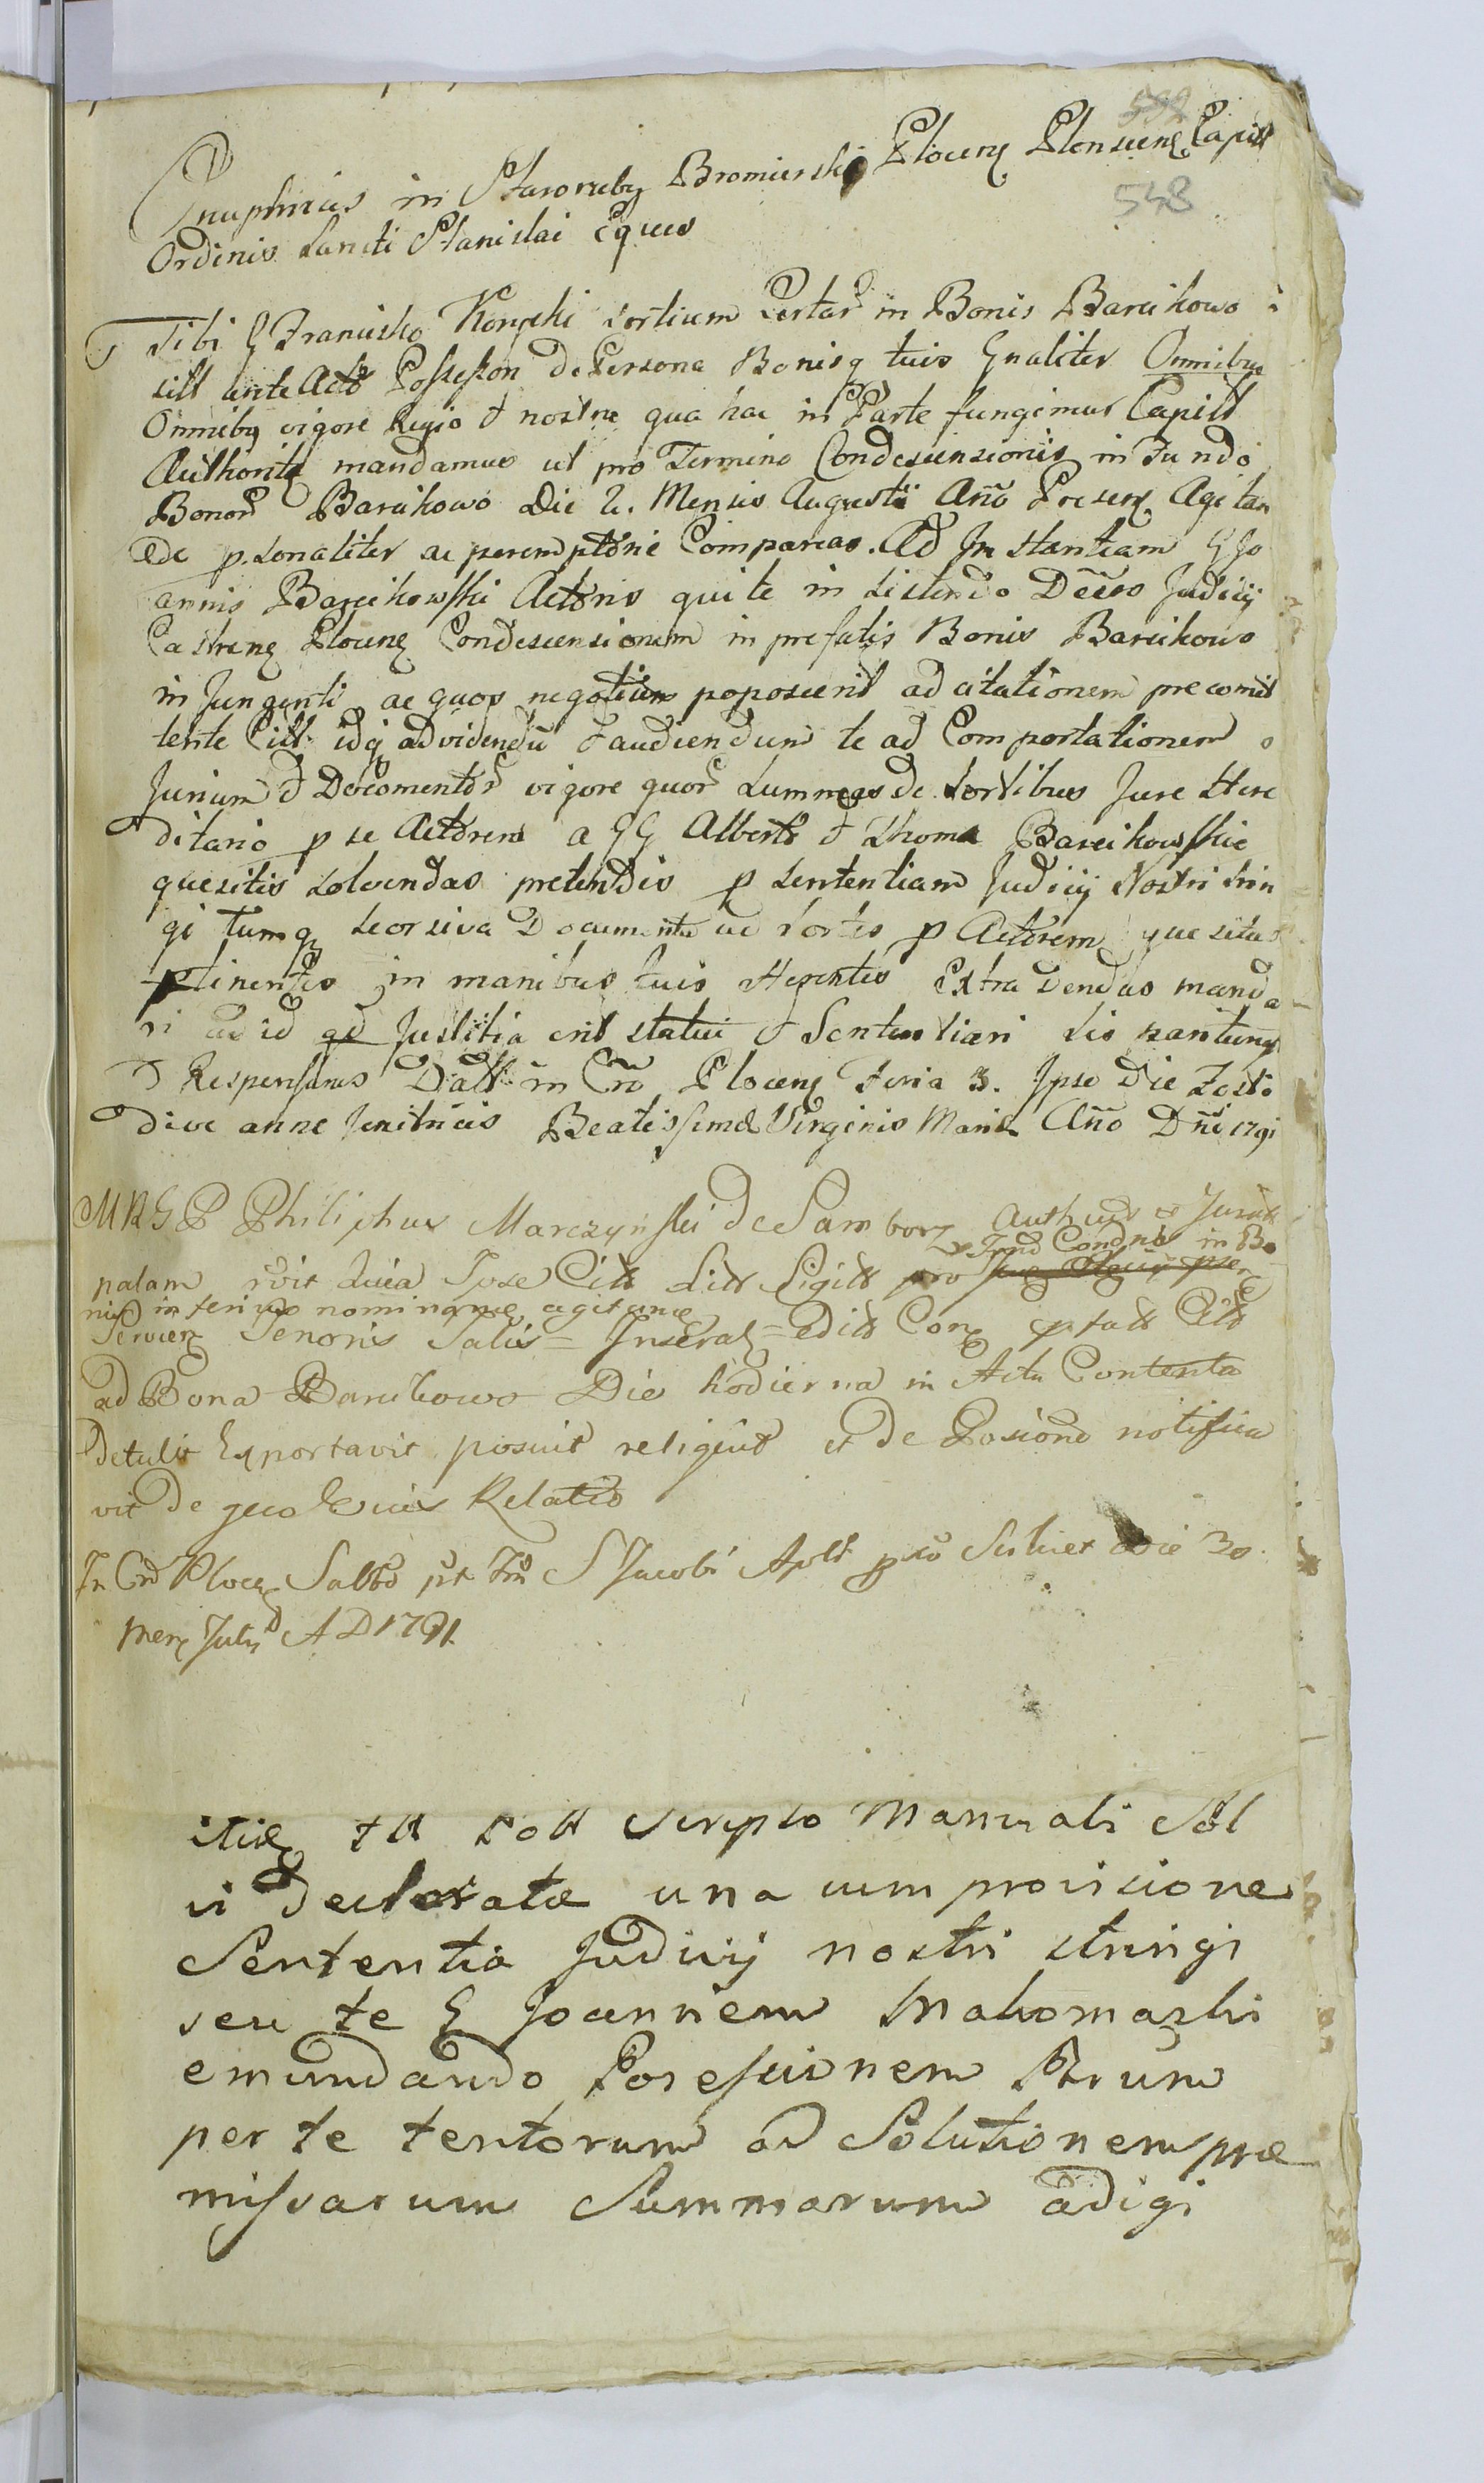 592
548
Onuphrius in Staroruby Bromierski Plocens Plonscens Capit
Ordinis Sancti Stanislai Eques
Tibi G Francisco Konycki sortium Certar in Bonis Barcikowo
sill ante Acto Possesson de Persona Bonisq tuis Gnaliter Omnibus
Omnibq vigore Regio & nostra qua hac in Parte fungimur Capitt
Authoritte mandamus ut pro Termino Condescensionis in Fundo
Bonorr Barcikowo Die 2. Mensis Augusti Año Presens Agitan
de p.sonaliter ac peremptorie Compareas. Ad Instantiam G Jo
annis Barcikowski Actoris qui te in sistendo Decreto Judicij
Castrens Plocens Condescensionem in prefatis Bonis Barcikowo
in Jungenti ac quos negotium poposcerit ad citationem precomit
tente Citt idq ad videndũ & audiendum te ad Comportationem
Jurium & Documentorr vigore quorr Summas de Sortibus Jure Here
ditario p se Actorem a GG Alberto & Thoma Barcikowskie
quesitis solvendas pretendis p Sententiam Judicij Nostri strin
gi tumq seorsiva Documenta ad sortes p Actorem quesitas
ptinentes in manibus tuis Herentes Extradendas manda
ri ac id qd Justitia erit statui & Sententiari Sis pariturq
& Responsurus Datt in Cro Plocens Feria 3. Ipso Die Festi
Dive anne Jenitricis Beatissime Virginis Marie Año Dñi 1791
MRGP Philiphus Marczynski de Sambory Authcus & Jurat
Fund Condnis in Bo
palam rvit Quia Ipse Citt Litt Sigitt pro
nis interius nominane agitane
Serviens Tenoris Talis = Inseratr = edidt Cons ptatt Citt
ad Bona Barcikowo Die hodierna in Actu Contenta
Detulit Exportavit posuit reliquit et De Posicione notifica
vit De quo Eius Relatio
In Cro Plocs Sabbo pt Fm S Jacobi Aplt pto Scilicet die 30
Mens Julij AD 1791.
itis & tt sott Scripto Manuali Sol
vi Declarata una cum provisione
Sententia Judicij nostri stringi
seu te G Joannem Makomaski
emundando Possessionem Brum
per te tentorum ad Solutionem præ
missarum Summarum adigi